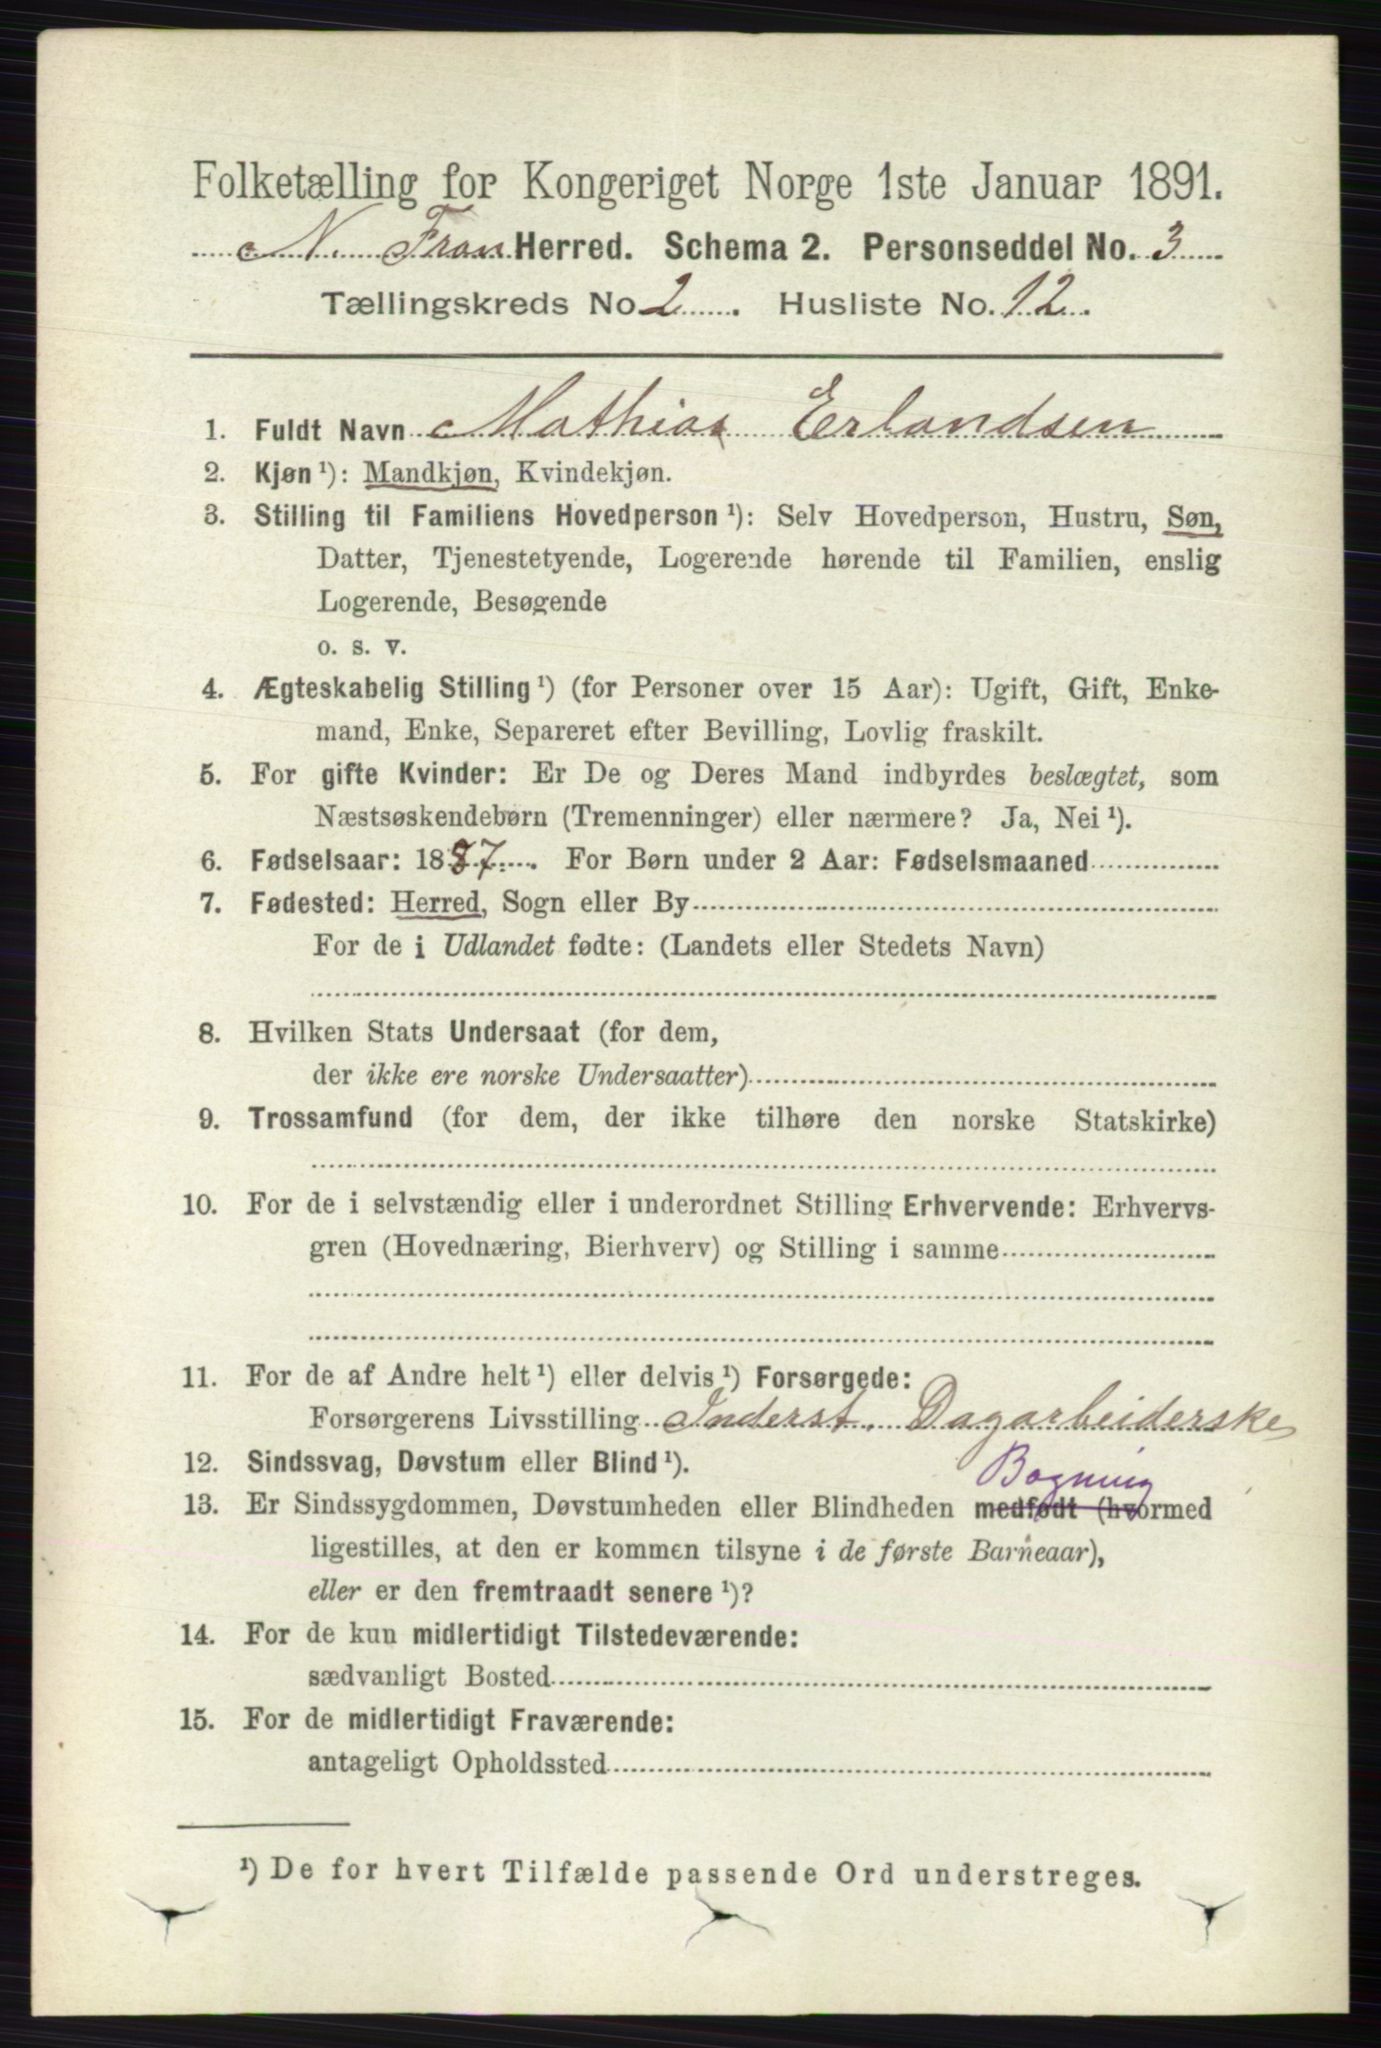 Folketælling for Kongeriget Norge 1ste Januar 1891.
N. Fron Herred. Schema 2. Personseddel No. 3
Tællingskreds No. 2. Husliste No. 12.
1. Fuldt Navn Mathias Erlandsen
2. Kjøn ¹): Mandkjøn, Kvindekjøn.
3. Stilling til Familiens Hovedperson ¹): Selv Hovedperson, Hustru, Søn,
Datter, Tjenestetyende, Logerende hørende til Familien, enslig
Logerende, Besøgende
o. s. v.
4. Ægteskabelig Stilling ¹) (for Personer over 15 Aar): Ugift, Gift, Enke-
mand, Enke, Separeret efter Bevilling, Lovlig fraskilt.
5. For gifte Kvinder: Er De og Deres Mand indbyrdes beslægtet, som
Næstsøskendebørn (Tremenninger) eller nærmere? Ja, Nei ¹).
6. Fødselsaar: 1887. For Børn under 2 Aar: Fødselsmaaned
7. Fødested: Herred, Sogn eller By
For de i Udlandet fødte: (Landets eller Stedets Navn)
8. Hvilken Stats Undersaat (for dem,
der ikke ere norske Undersaatter)
9. Trossamfund (for dem, der ikke tilhøre den norske Statskirke)
10. For de i selvstændig eller i underordnet Stilling Erhvervende: Erhvervs-
gren (Hovednæring, Bierhverv) og Stilling i samme
11. For de af Andre helt ¹) eller delvis ¹) Forsørgede:
Forsørgerens Livsstilling Inderst. Dagarbeiderske
12. Sindssvag, Døvstum eller Blind ¹).
Bogming
13. Er Sindssygdommen, Døvstumheden eller Blindheden medfødt (hvormed
ligestilles, at den er kommen tilsyne i de første Barneaar),
eller er den fremtraadt senere ¹)?
14. For de kun midlertidigt Tilstedeværende:
sædvanligt Bosted
15. For de midlertidigt Fraværende:
antageligt Opholdssted
¹) De for hvert Tilfælde passende Ord understreges.